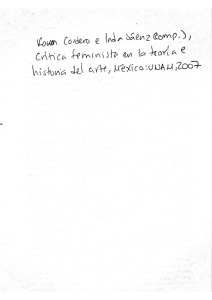 Karen Cordero e Inda Sáenz (comp.),
Crítica feminista en la teoría e
historia del arte, México: UNAM, 2007